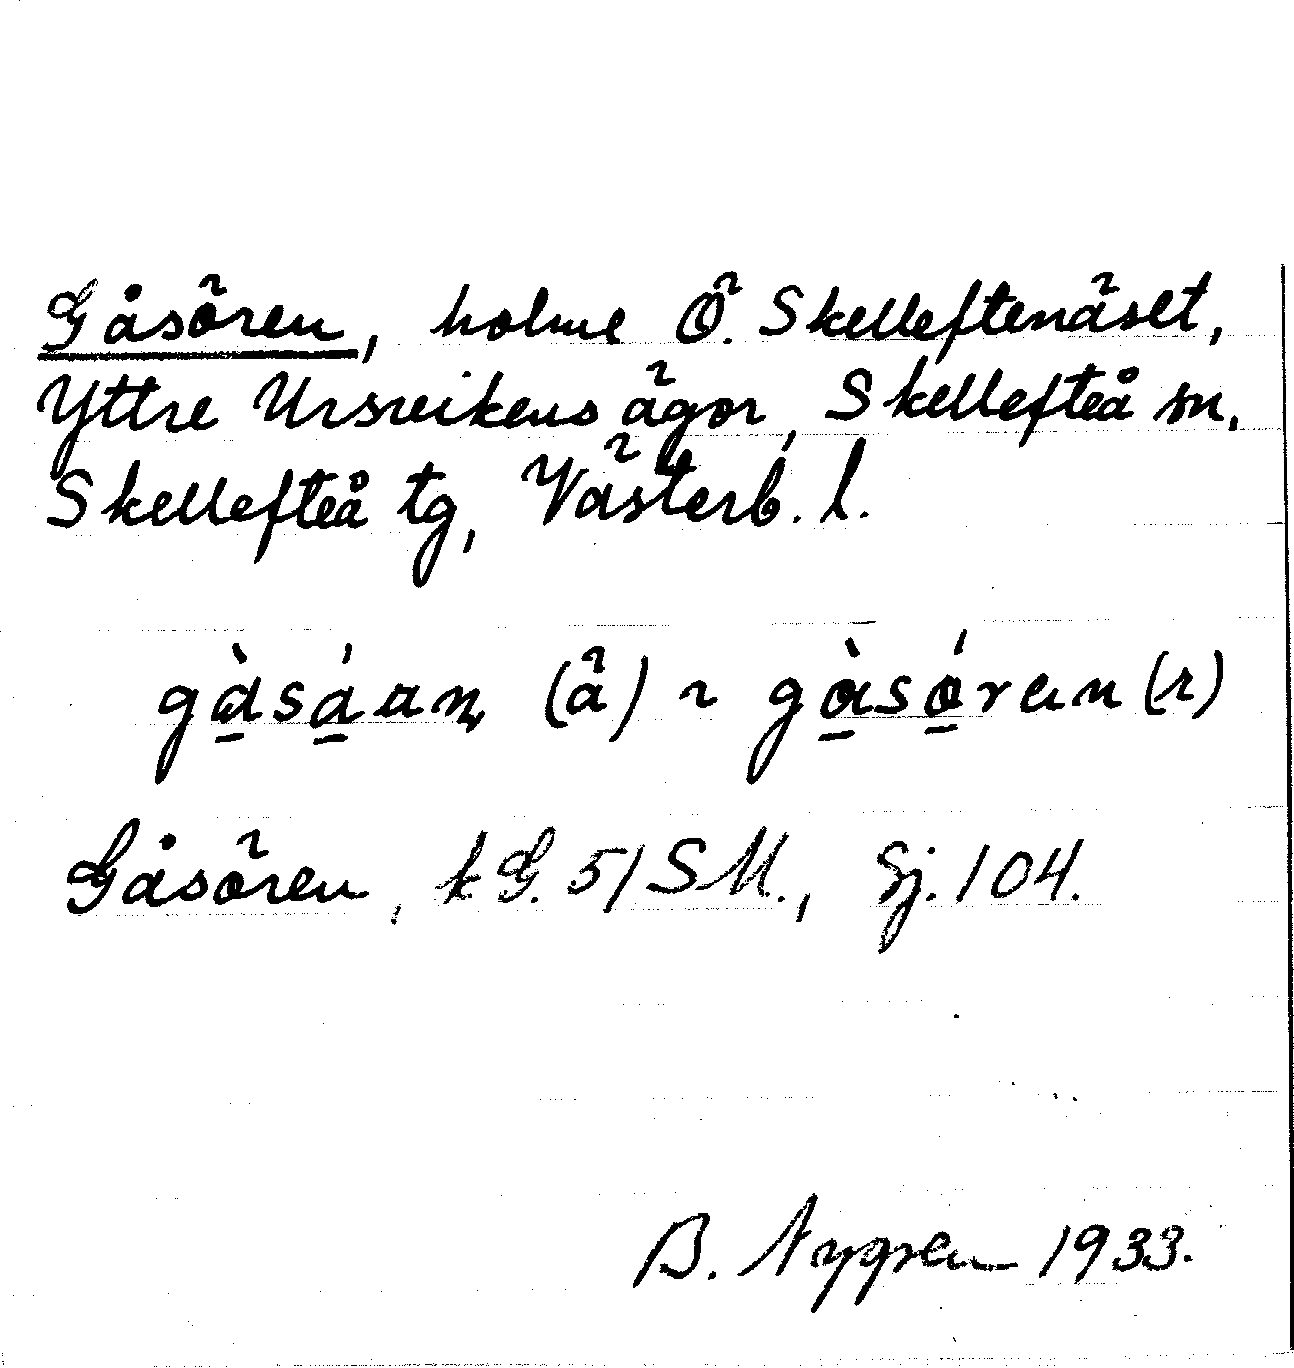 Gåsören, holme Ö. Skelleftenäset,
Yttre Ursvikens ägor, Skellefteå sn.
Skellefteå tg, Västerb. l.
Gåsören, k G. 51 SM., Sj. 104.
B. Nygren 1933.